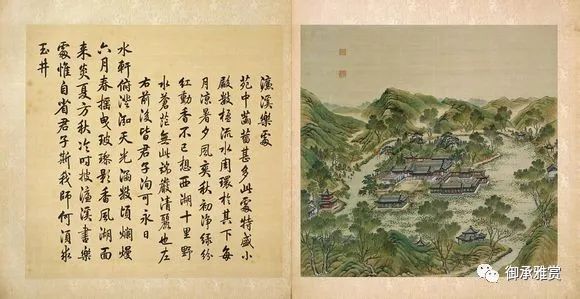 濂溪樂處
苑中菡萏甚多此處特盛小
殿數楹流水周環於其下每
月涼暑夕風爽秋初淨綠紛
紅動香不已想西湖十里野
水蒼茫無此端嚴清麗也左
右前後皆君子洵可永日
水軒俯澄泓天光涵數頃爛熳
六月春搖曳玻瓈影香風湖面
來炎夏方秋冷時披濂溪書樂
處惟自省君子斯我師何須求
玉井
御承雅赏